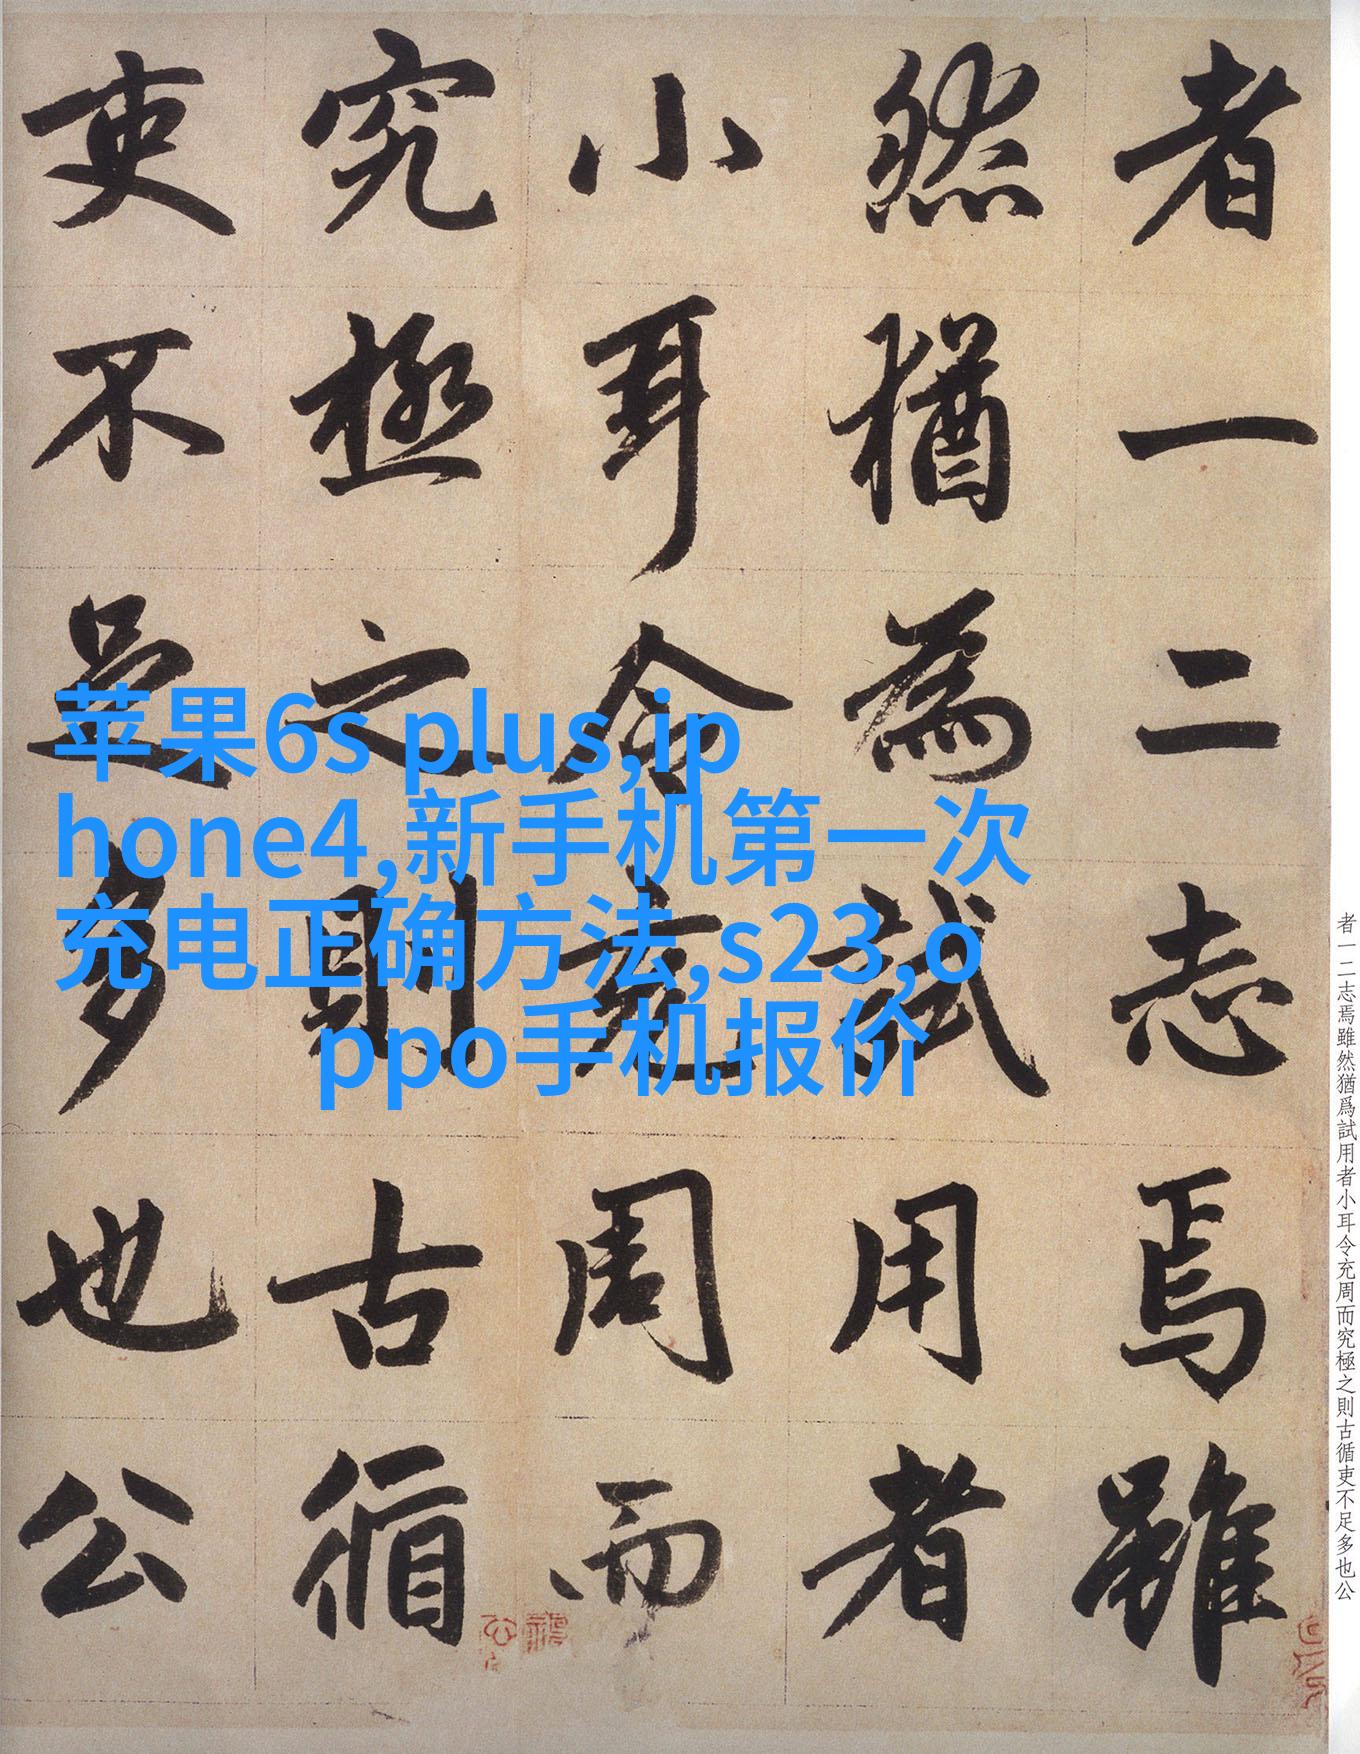 者一二志焉雖
然猶為試用者
小耳令充周而
究極之則古循
吏不足多也公
苹果6s plus,ip
hone4,新手机第一次
充电正确方法,s23,o
ppo手机报价
者一二志焉雖然猶爲試用者小耳令充周而究極之則古循吏不足多也公